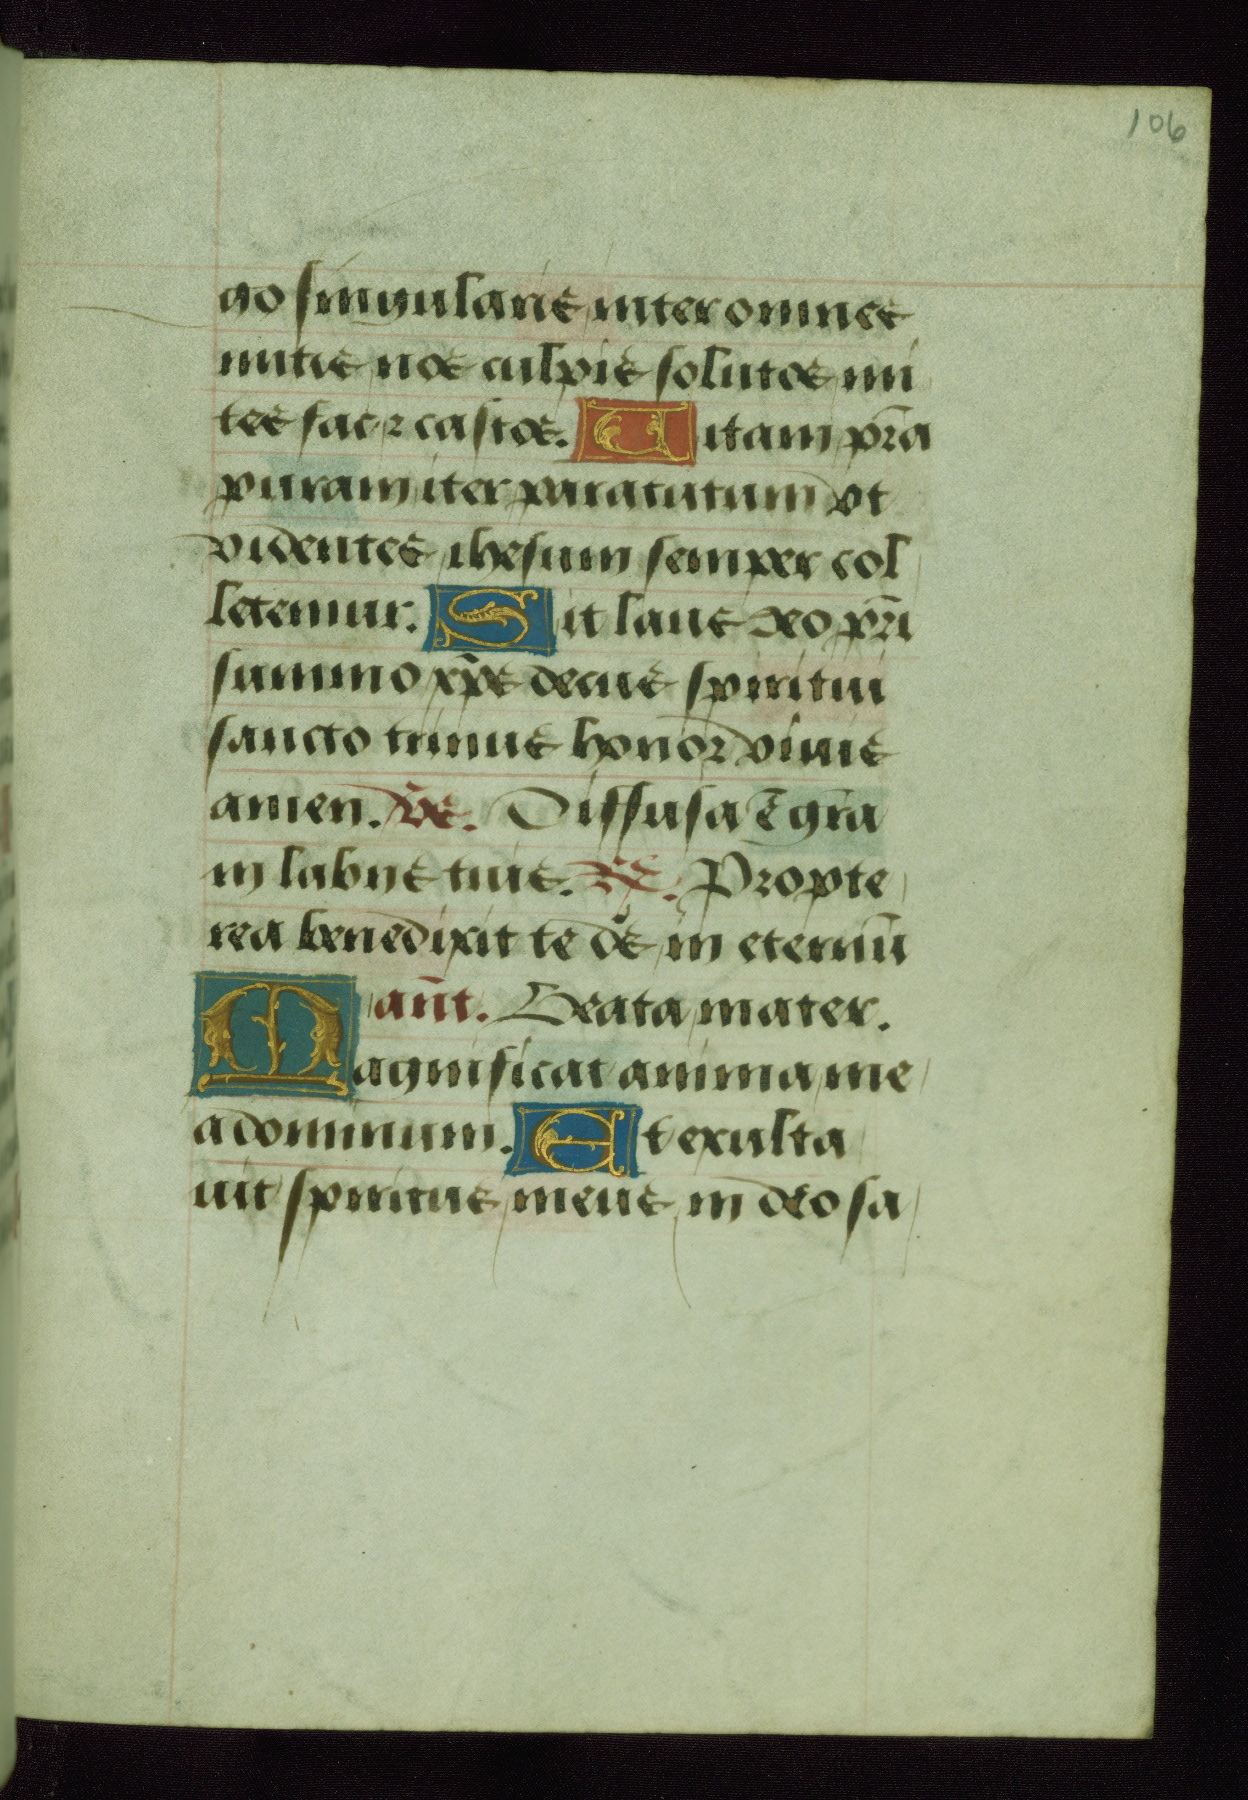 106
go singularis inter omnes
mitis nos culpis solutos mi
tes fac ꝛ castos. Uitam pr̄a
puram iter para tutum vt
videntes ihesum semper col
letemur. Sit laus deo pr̄i
summo xp̄s decus spiritui
sancto trinus honor vnus
amen. V̄s. Diffusa ē gr̄a
in labijs tuis. R̄s. Propte
rea benedixit te de᷒ in eternū
an̄t. Beata mater.
Magnificat anima me
a dominum. Et exulta
uit spiritus meus in deo sa